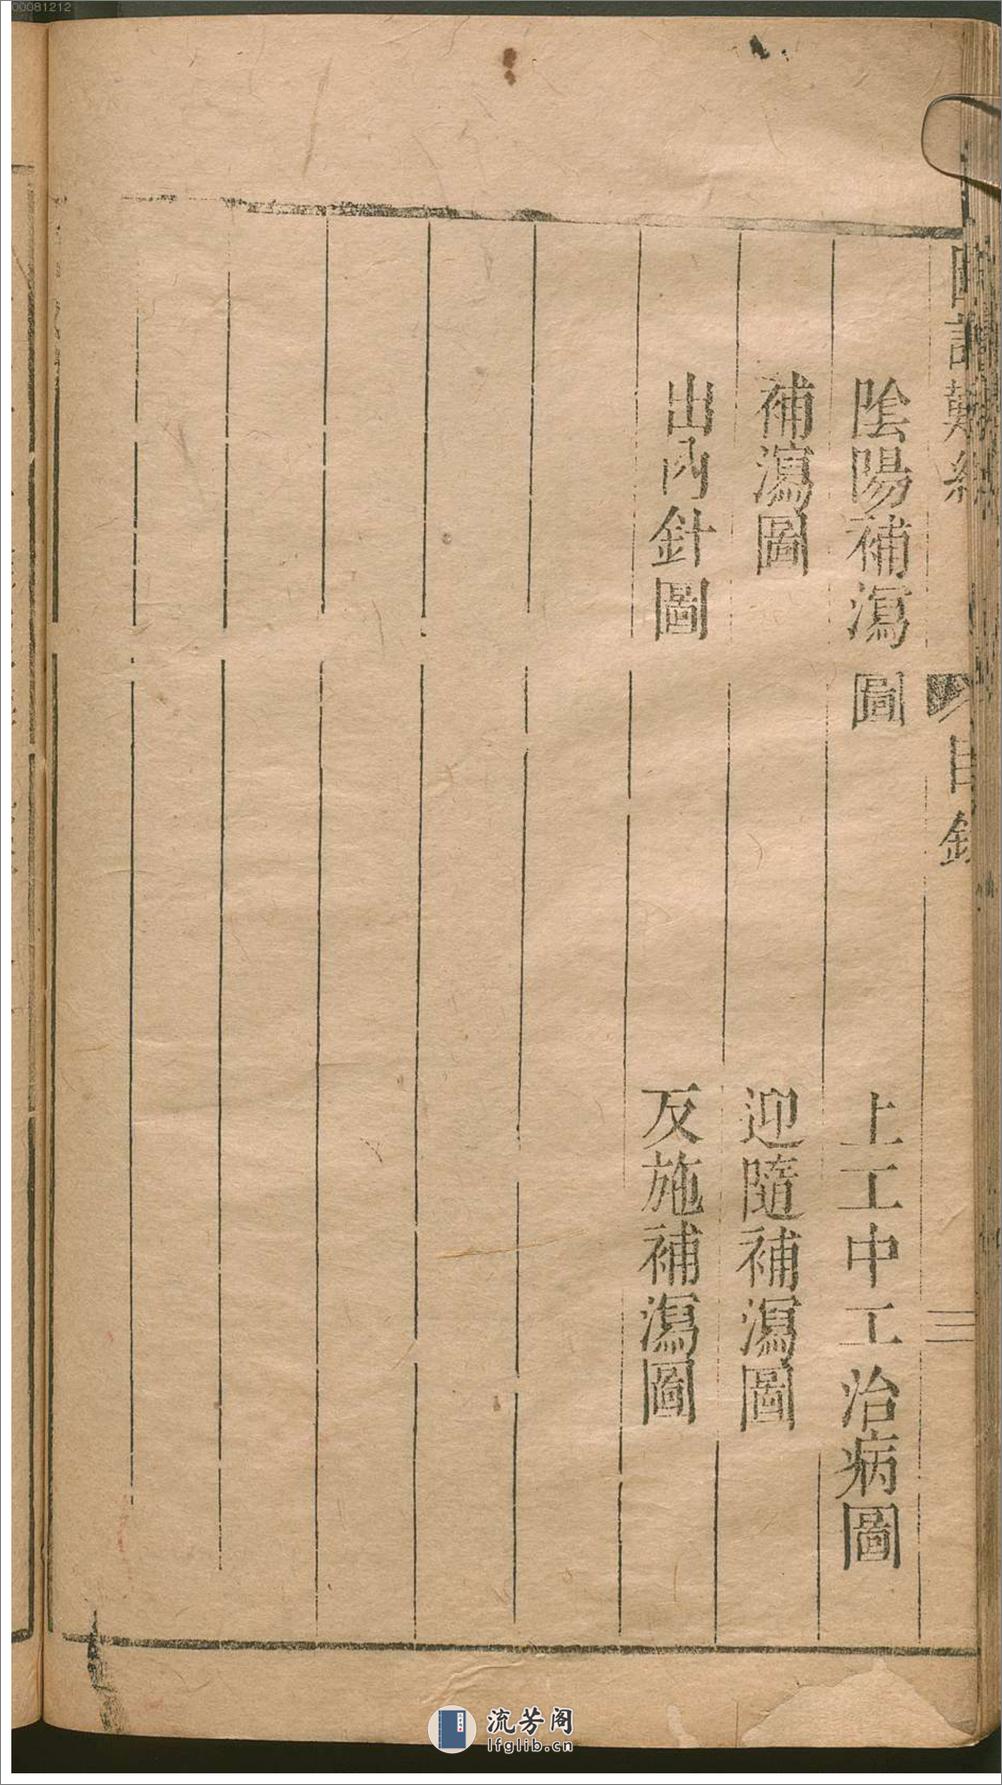 00081212
圖註難經 目錄 三
陰陽補瀉圖 上工中工治病圖
補瀉圖 迎隨補瀉圖
出內針圖 反施補瀉圖
流芳阁
lfglib.cn